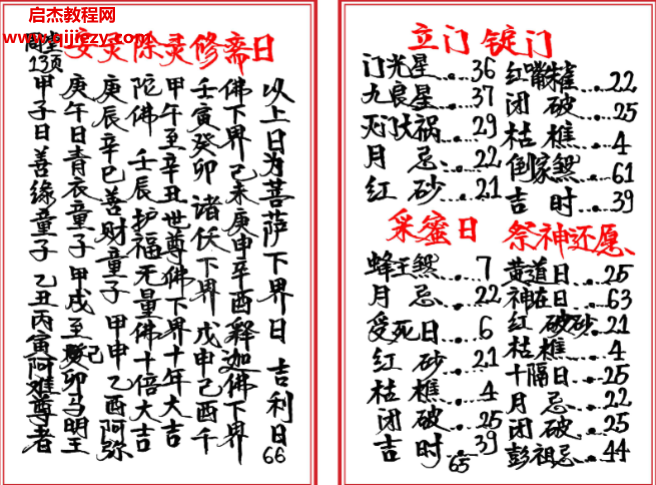 启杰教程网
www.qijiejy.com
安灵除灵修斋日
13页
甲子日善缘童子 乙丑丙寅阿难尊者
庚午日青衣童子 甲戌至己卯马明王
庚辰辛巳善财童子 甲申乙酉阿弥
陀佛 壬辰护福无量佛十倍大吉
甲午至辛丑世尊佛下界十年大吉
壬寅癸卯诸仸下界 戊申己酉千
佛下界己未庚申辛酉释迦佛下界
以上日为菩萨下界日 吉利日
66
立门 锭门
门光星....36
九良星....37
灭门大祸...29
月忌....22
红砂....21
红嘴朱雀...22
闭破....25
枯樵....4
倒家煞...61
吉时....39
采蜜日
蜂王煞....7
月忌....22
受死日....6
红砂....21
枯樵....4
闭破....25
吉时....39
祭神还愿
黄道日...25
神在日...63
红破砂..21
枯樵....4
十隔日...25
月忌....22
闭破....25
彭祖忌...44
65